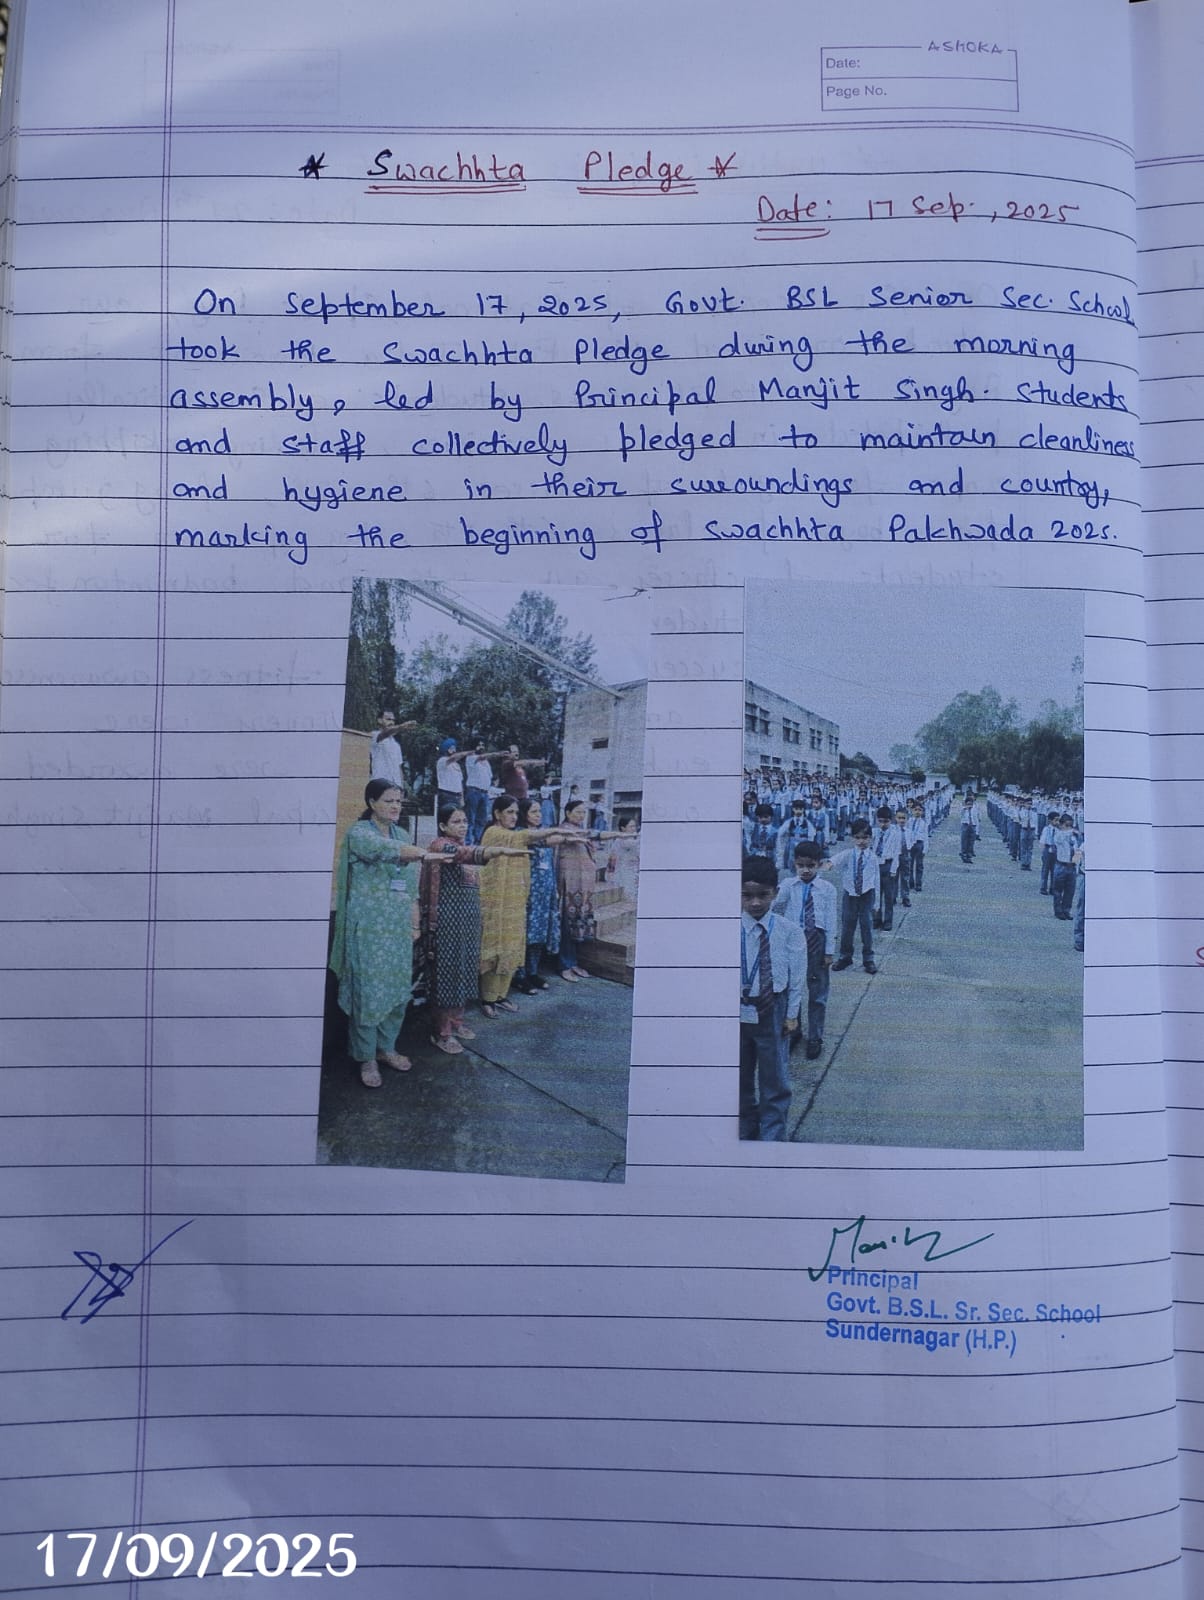 ASHOKA
Date:
Page No.
* Swachhta Pledge *
Date: 17 Sep., 2025
On September 17, 2025, Govt. BSL Senior Sec. School
took the Swachhta Pledge during the morning
assembly, led by Principal Manjit Singh. Students
and staff collectively pledged to maintain cleanliness
and hygiene in their surroundings and country,
marking the beginning of Swachhta Pakhwada 2025.
Principal
Govt. B.S.L. Sr. Sec. School
Sundernagar (H.P.)
17/09/2025